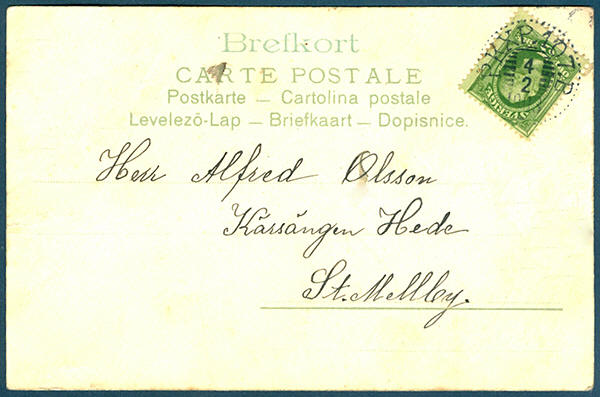 Brefkort
CARTE POSTALE
Postkarte — Cartolina postale
Levelező-Lap — Briefkaart — Dopisnice.
Herr Alfred Olsson
Kärsängen Hede
St. Mellby.
PKXP 107 B
4
2